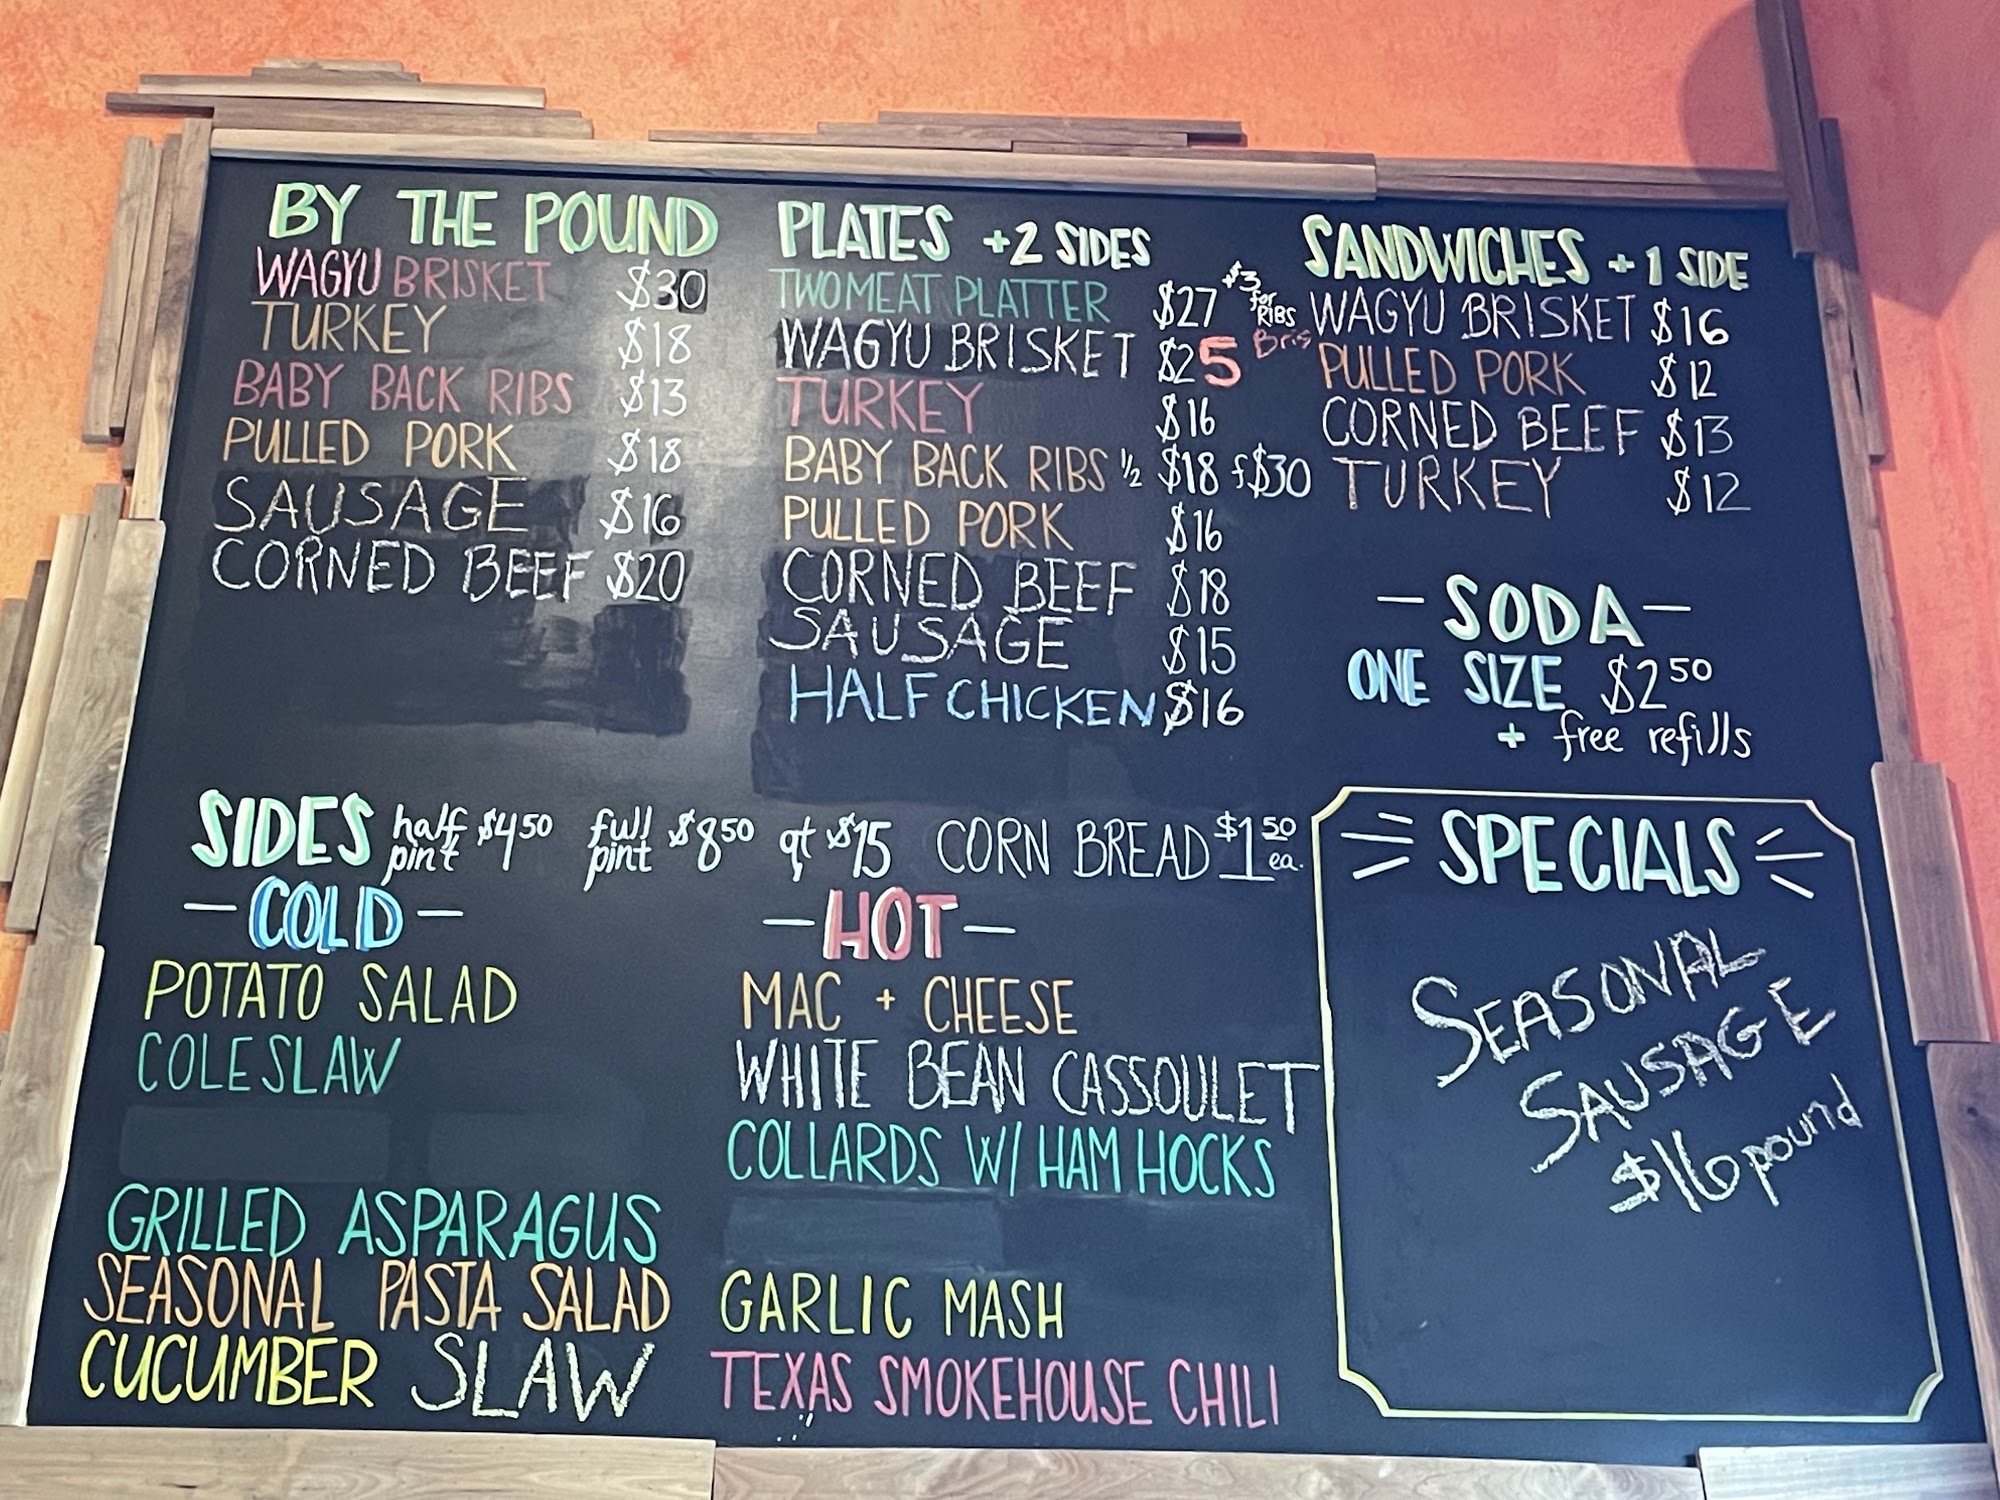 BY THE POUND
WAGYU BRISKET $30
TURKEY $18
BABY BACK RIBS $13
PULLED PORK $18
SAUSAGE $16
CORNED BEEF $20
PLATES +2 SIDES
TWO MEAT PLATTER $27 +$3 for RIBS
WAGYU BRISKET $25 Bris
TURKEY $16
BABY BACK RIBS ½ $18 f $30
PULLED PORK $16
CORNED BEEF $18
SAUSAGE $15
HALF CHICKEN $16
SANDWICHES + 1 SIDE
WAGYU BRISKET $16
PULLED PORK $12
CORNED BEEF $13
TURKEY $12
— SODA —
ONE SIZE $2.50
+ free refills
SIDES half pint $4.50 full pint $8.50 qt $15 CORN BREAD $1.50 ea.
— COLD —
POTATO SALAD
COLESLAW
GRILLED ASPARAGUS
SEASONAL PASTA SALAD
CUCUMBER SLAW
— HOT —
MAC + CHEESE
WHITE BEAN CASSOULET
COLLARDS W/ HAM HOCKS
GARLIC MASH
TEXAS SMOKEHOUSE CHILI
SPECIALS
SEASONAL
SAUSAGE
$16 pound